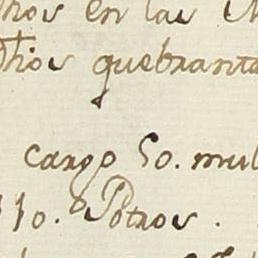 en las
quebranta
cargo 50. mul
10. Potros.